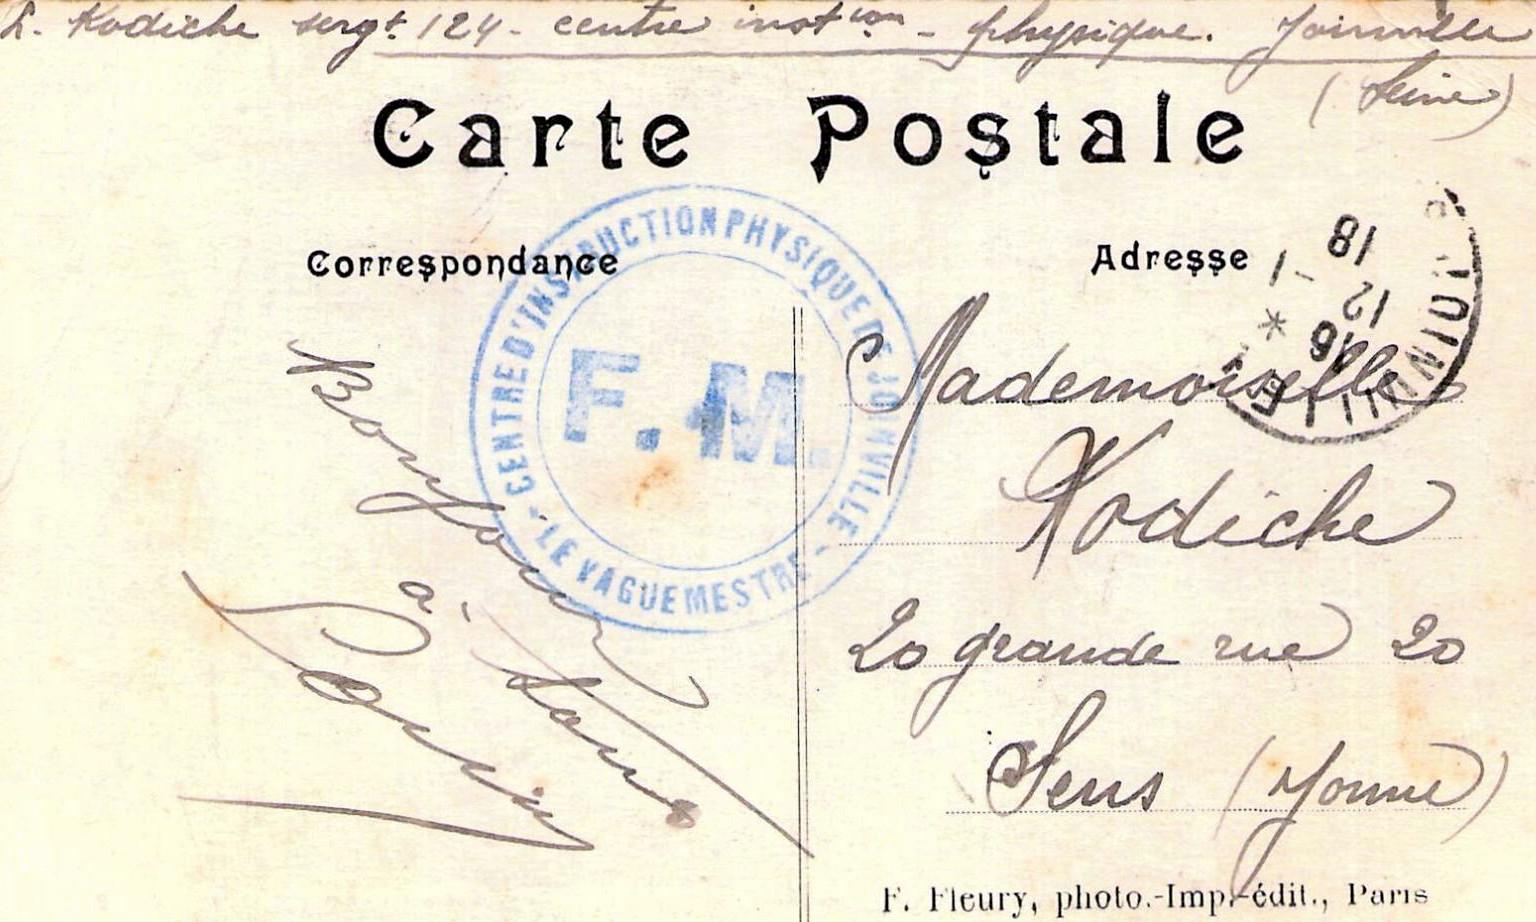 L. Kodiche sergt 124 - centre instion - physique. Joinville
(Seine)
Carte Postale
CENTRE D'INSTRUCTION PHYSIQUE DE JOINVILLE
F.M.
- LE VAGUEMESTRE -
Correspondance
Adresse
18
12 - 1
16 *
JOINVILLE
Bonjour
à tous
Louis
Mademoiselle
Kodiche
20 grande rue 20
Sens (Yonne)
F. Fleury, photo.-Imp.-édit., Paris